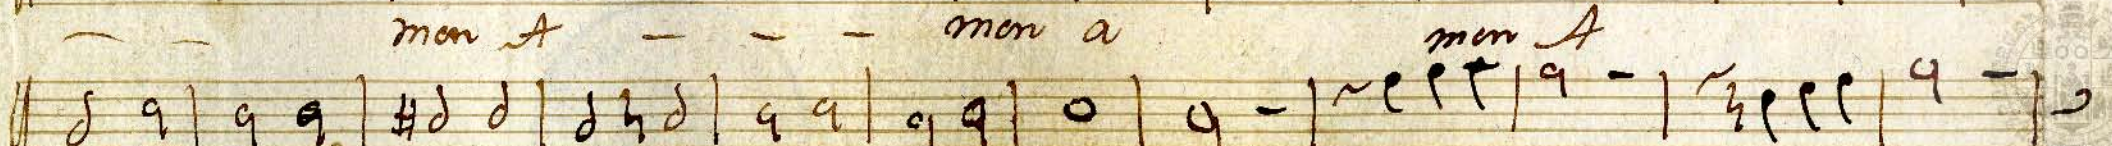 — — men A — — — men a men A